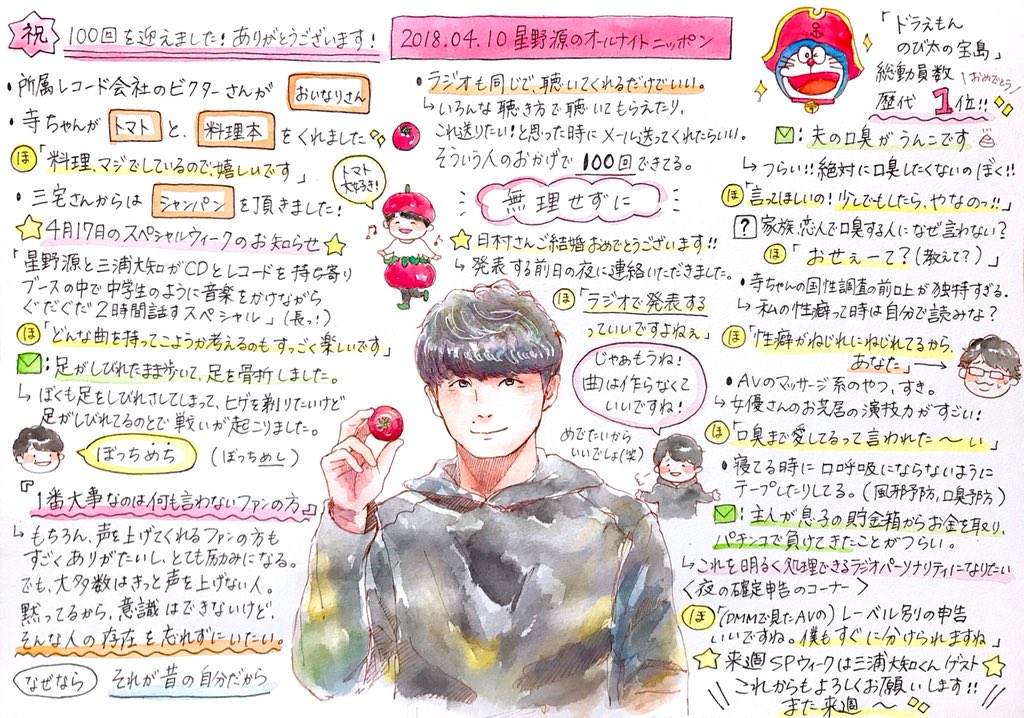 祝
100回を迎えました!ありがとうございます!
2018.04.10 星野源のオールナイトニッポン
・所属レコード会社のビクターさんが おいなりさん
・寺ちゃんが トマト と、料理本 をくれました
ほ「料理、マジでしているので、嬉しいです」
・三宅さんからは シャンパン を頂きました!
トマト
大好き!
4月17日のスペシャルウィークのお知らせ
「星野源と三浦大知がCDとレコードを持ち寄り
ブースの中で中学生のように音楽をかけながら
ぐだぐだ2時間話すスペシャル」(長っ!)
ほ「どんな曲を持ってこようか考えるのもすっごく楽しいです」
足がしびれたまま歩いて、足を骨折しました。
↳ぼくも足をしびれさしてしまって、ヒゲを剃りたいけど
足がしびれてるのとで戦いが起こりました。
ぼっちめち
(ぼっちめし)
『1番大事なのは何も言わないファンの方』
↳もちろん、声を上げてくれるファンの方も
すごくありがたいし、とても励みになる。
でも、大多数はきっと声を上げない人。
黙ってるから、意識はできないけど、
そんな人の存在を忘れずにいたい。
なぜなら
それが昔の自分だから
・ラジオも同じで、聴いてくれるだけでいい。
↳いろんな聴き方で聴いてもらえたり、
これ送りたい!と思った時にメール送ってくれたらいい。
そういう人のおかげで100回できてる。
無理せずに
日村さんご結婚おめでとうございます!!
↳発表する前日の夜に連絡いただきました。
ほ「ラジオで発表する
っていいですよねぇ」
じゃぁもうね!
曲は作らなくて
いいですね!
めでたいから
いいでしょ(笑)
「ドラえもん
のび太の宝島」
総動員数
おめでとう
歴代 1位!!
:夫の口臭がうんこです
↳つらい!!絶対に口臭したくないのぼく!!
ほ「言ってほしいの!少しでもしたら、やなのっ!!」
? 家族、恋人で口臭する人になぜ言わない?
ほ「おせぇーて?(教えて?)」
・寺ちゃんの国性調査の前口上が独特すぎる。
↳私の性癖って時は自分で読みな?
ほ「性癖がねじれにねじれてるから、
あなた」→
・AVのマッサージ系のやつ、すき。
↳女優さんのお芝居の演技力がすごい!
ほ「口臭まで愛してるって言われた〜い」
・寝てる時に口呼吸にならないように
テープしたりしてる。(風邪予防、口臭予防)
:主人が息子の貯金箱からお金を取り、
パチンコで負けてきたことがつらい。
↳これを明るく処理できるラジオパーソナリティになりたい
<夜の確定申告のコーナー>
ほ「(DMMで見たAVの)レーベル別の申告
いいですね。僕もすぐに分けられますね」
来週SPウィークは三浦大知くんゲスト
これからもよろしくお願いします!!
また来週〜